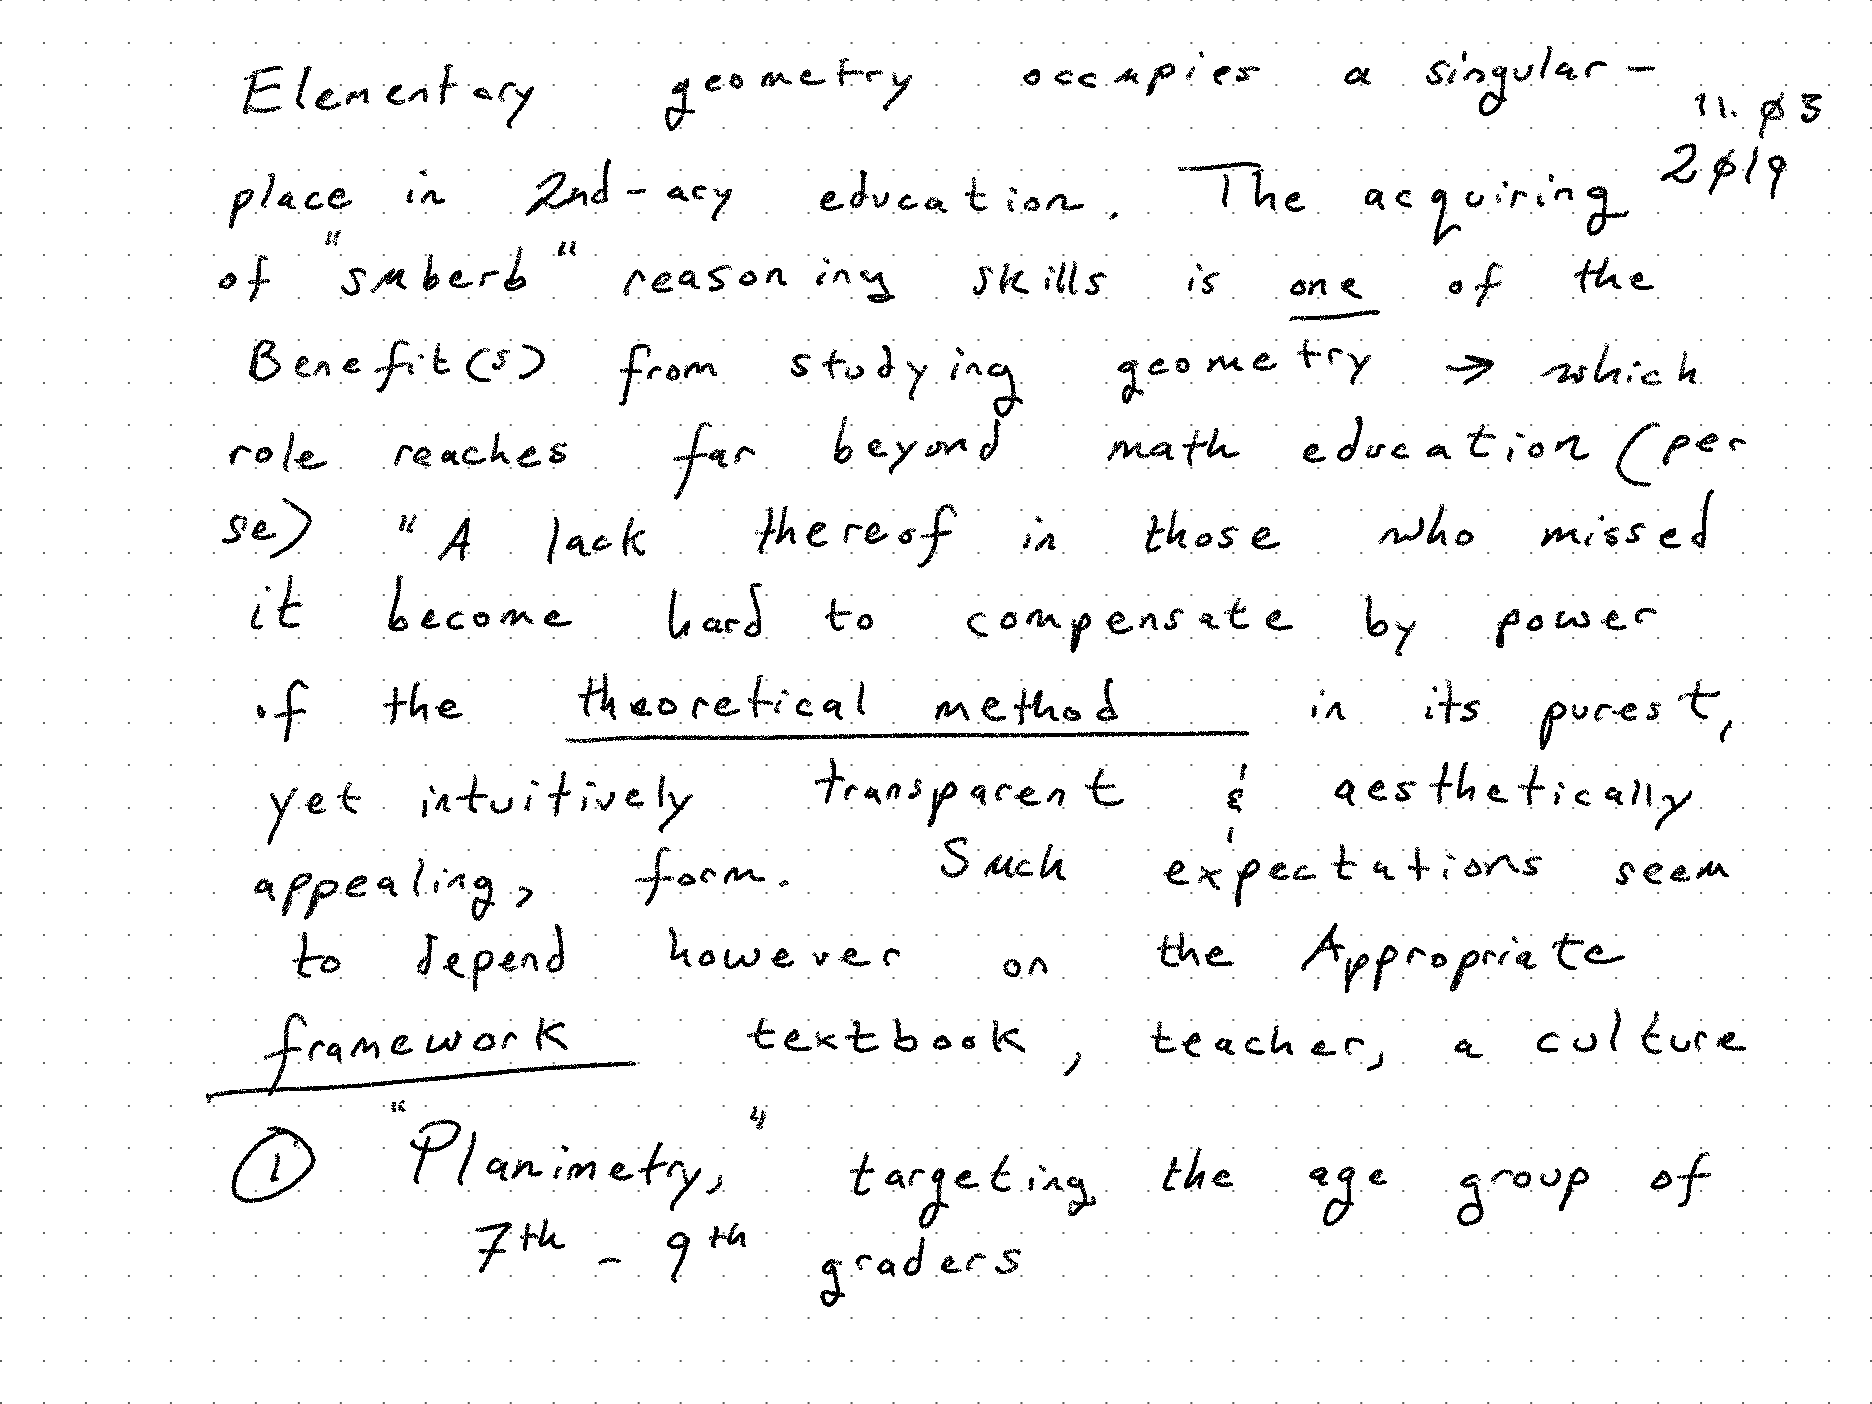 Elementary geometry occupies a singular-
11.ø3
2ø19
place in 2nd-ary education. The acquiring
of "suberb" reasoning skills is one of the
Benefit(s) from studying geometry → which
role reaches far beyond math education (per
se) "A lack thereof in those who missed
it become hard to compensate by power
of the theoretical method in its purest,
yet intuitively transparent & aesthetically
appealing, form. Such expectations seem
to depend however on the Appropriate
framework textbook, teacher, a culture
① "Planimetry," targeting the age group of
7th - 9th graders